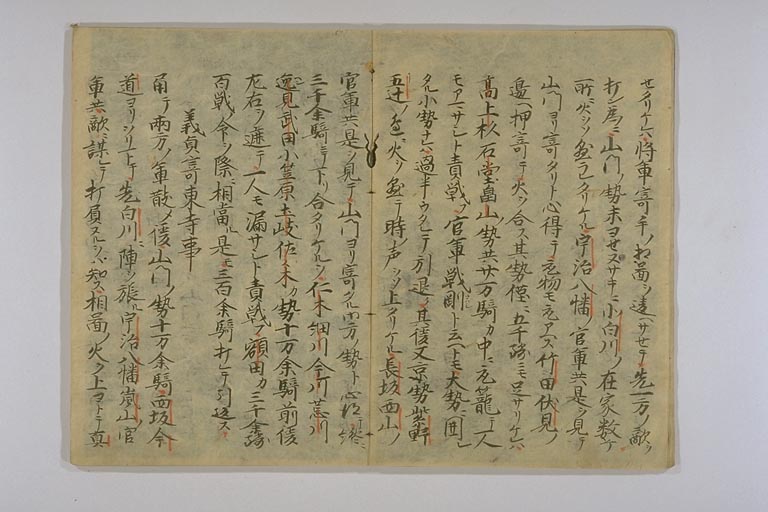 セタリケレハ将軍寄手ノ相図ヲ違ハサセテ先一方ノ敵ヲ
打ン為ニ山門ノ勢未ヨセヌサキニ小白川ノ在家数
所ニ火ヲソ懸ラレタリケル宇治八幡ノ官軍共是ヲ見テ
山門ヨリ寄タリト心得テ
竹田伏見ノ
邊ヘ押寄テ火ヲ合ス其勢僅ニ五千騎ニモ足サリケレハ
高上杉石堂畠山勢共廿万騎カ中ニ
籠テ一人
モアマサシト責戦フ官軍戦剛ト云ヘトモ大勢ニ囲レ
タル小勢ナレハ過半ウタレテ引退ク其後又京勢紫野
五辻ノ邊ニ火ヲ懸テ時ノ声ヲソ上タリケル長坂西山ノ
官軍共是ヲ見テ山門ヨリ寄タル
方ノ勢ト心得
三千余騎ニテ下リ合タリケルヲ仁木細川今川荒川
逸見武田小笠原土岐佐々木カ勢十万余騎前後
左右ヲ遮テ一人モ漏サシト責戦フ額田カ三千余騎
百戦ノ命ヲ際ニ相當ル是モ三百余騎打レテ引返ス
義貞寄東寺事
角テ両方ノ軍散メ後山門ノ勢十万余騎西坂今
道ヨリヲリ下テ先白川ニ陣ヲ張ル宇治八幡嵐山ノ官
軍共敵ニ謀レテ打負ヌルヲハ知ス相図ノ火ヲ上ヨトテ真